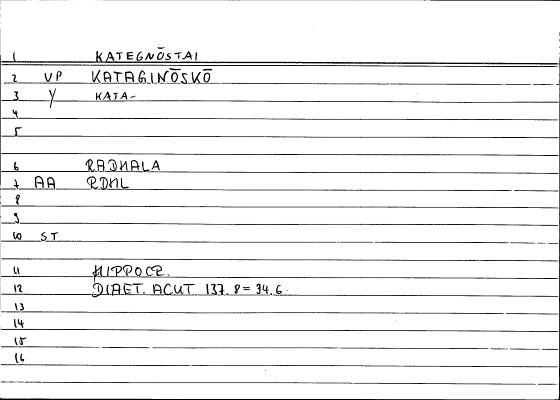 1 KATEGNŌSTAI
2 VP KATAGINŌSKŌ
3 Y KATA-
4
5
6 RADHALA
7 AA RDHL
8
9
10 ST
11 HIPPOCR.
12 DIAET. ACUT. 137.8 = 34.6.
13
14
15
16